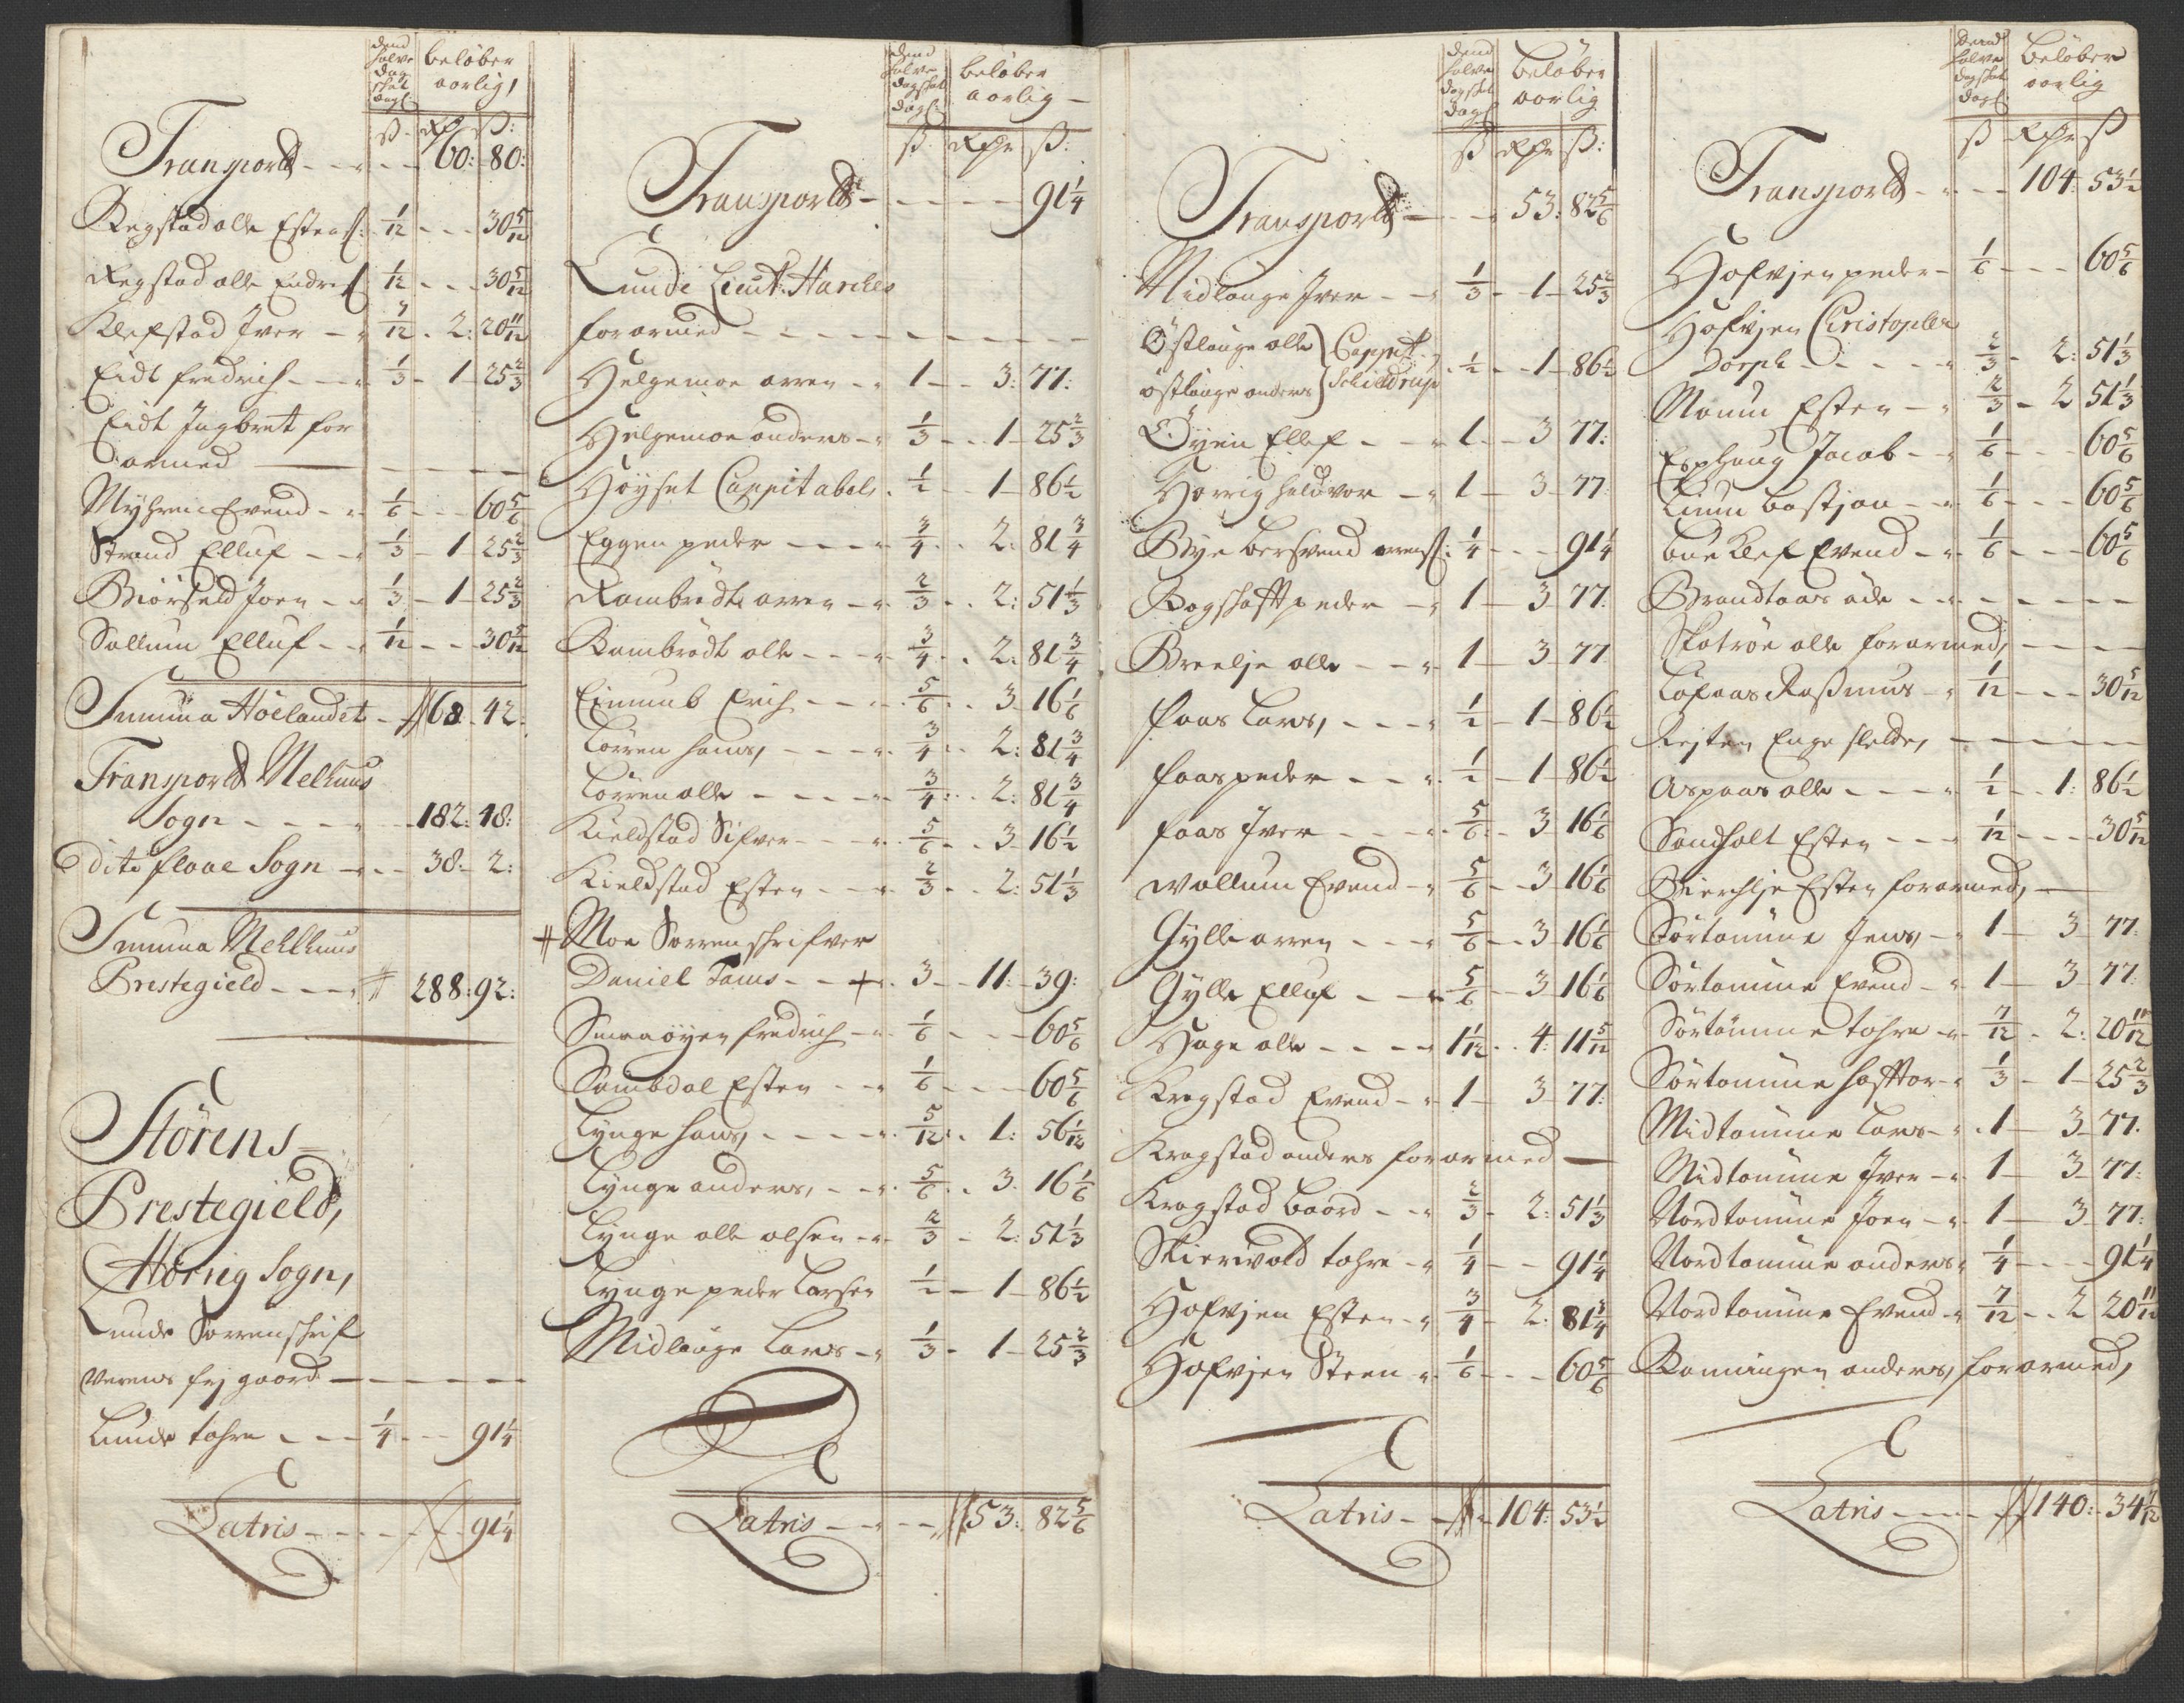 dend halve dag skat dagl: beløber aarlig,
ß Rdr ß:
Transport - - - 60: 80:
Regstad olle Estens: 1/12 - - 30 5/12
Regstad olle Endres 1/12 - - 30 5/12
Klefstad Iver - 7/12 - 2: 20 11/12
Eidt fredrich - - 1/3 - 1 - 25 2/3
Eidt Ingbret for
armed - - - -
Myhren Evend - 1/6 - - 60 5/6
Strand Elluf - - 1/3 - 1 - 25 2/3
Biørset Joen - - 1/3 - 1 - 25 2/3
Sollum Elluf - - 1/12 - - 30 5/12
Summa Hölandet - 68 - 42:
Transport Melhuus
Sogn - - - - 182: 48:
Dito flaae Sogn - - 38: - 2:
Summa Mehlhuus
Prestegield - - - 288: 92:
Störens
Prestegield,
Hörrig Sogn,
Lunde Sorrenschrif
verens frj gaard - - - -
Lunde tohre - - - 1/4 - - 91 1/4
Latris - - - - 91 1/4
dend halve dagskat dagl: beløber aarlig -
ß Rdr ß:
Transport - - - - 91 1/4
Lunde Lieut: Harches
forarmed - - - - - -
Helgemoe arren - 1 - - 3: 77:
Helgemoe anders - 1/3 - - 1 - 25 2/3
Høyset Cappit abels 1/2 - - 1 - 86 1/2
Eggen peder - - - 3/4 - - 2: 81 3/4
Rambrødt arren - - 2/3 - - 2: 51 1/3
Rambrødt olle - - - 3/4 - - 2: 81 3/4
Eimund Erich - - - 5/6 - - 3 - 16 1/6
Lørren hans, - - - 3/4 - - 2: 81 3/4
Lørren olle - - - 3/4 - - 2: 81 3/4
Kieldstad Sifver - - 5/6 - - 3 - 16 1/2
Kieldstad Esten - - 2/3 - - 2: 51 1/3
Moe Sorrenschrifver
Daniel Tams - - + 3 - 11: - 39:
Smaaøyen fredrich - 1/6 - - - 60 5/6
Sambdal Esten - - 1/6 - - - 60 5/6
Lynge hans, - - - 5/12 - - 1: 56 1/12
Lynge anders, - - 5/6 - - 3: 16 1/6
Lynge olle olsen - 2/3 - 2: 51 1/3
Lynge peder Larsen 1/2 - 1 - 86 1/2
Midlange Lars - 1/3 - 1 - 25 2/3
Latris - - - 53: 82 5/6
dend halve dagskat dagl: beløber aarlig
ß Rdr ß:
Transport - - - 53: 82 5/6
Midlange Iver - - 1/3 - 1 - 25 2/3
Østlange olle } Cappit:
østlange anders } Schieldrup 1/2 - - 1 - 86 1/2
Øyen Ellef - - - 1 - - 3 77:
Hørrig haldvor - 1 - 3 - 77
Bye bersvend arens: 1/4 - - - 91 1/4
Rogshaft peder - 1 - 3 77:
Breelje olle - - 1 - 3 - 77
faas Lars, - - - 1/2 - 1 - 86 1/2
faas peder - - - 1/2 - 1 - 86 1/2
faas Iver - - - 5/6 - 3 16 1/6
wollum Evend - 5/6 - - 3 16 1/6
Gylle arren - - - 5/6 - - 3 16 1/6
Gylle Elluf - - 5/6 - - 3 16 1/6
Hage olle - - - 1 1/12 - - 4: 11 5/12
Kragstad Evend - - 1 - 3 - 77:
Kragstad anders forarmed -
Kragstad baard - - 2/3 - 2: 51 1/3
Skierwold tohre - 1/4 - - 91 1/4
Hofvjen Esten - 3/4 - 2: 81 3/4
Hofvjen Steen - 1/6 - - 60 5/6
Latris - - - 104: 53 1/2
dend halve dagskat dagl: beløber aarlig
ß Rdr ß
Transport - - - 104: 53 1/2
Hofvjen peder - 1/6 - - - 60 5/6
Hofvjen Christopher
Dorph - - - - 2/3 - 2: 51 1/3
Moum Esten - - 2/3 - 2 51 1/3
Esphaug Jacob - - 1/6 - - - 60 5/6
Lium bastjan - - 1/6 - - - 60 5/6
bue Klef Evend - - 1/6 - - - 60 5/6
Brandtaas øde - - - - - -
Skotrøe olle forarmed, - - -
Løfaas Rasmus - 1/12 - - 30 5/12
Rejten Enge slette, - - - -
Aspaas olle - - - 1/2 - - 1: 86 1/2
Sandholt Esten - - - 1/12 - - - 30 5/12
Bierchlje Esten forarmed, -
Sørtømme Jens, - 1 - 3 - 77:
Sørtømme Evend - - 1 - 3 - 77:
Sørtømme tohre - 7/12 - 2: 20 11/12
Sørtømme hafftor - 1/3 - 1 - 25 2/3
Midtømme Lars - - 1 - 3 - 77.
Midtømme Iver - 1 - 3 - 77:
Nordtømme Joen - - 1 - 3 - 77:
Nordtømme anders 1/4 - - - 91 1/4
Nordtømme Evend - 7/12 - - 2 20 11/12
Ramingen anders, forarmed,
Latris - - - - 140: - 34 1/12